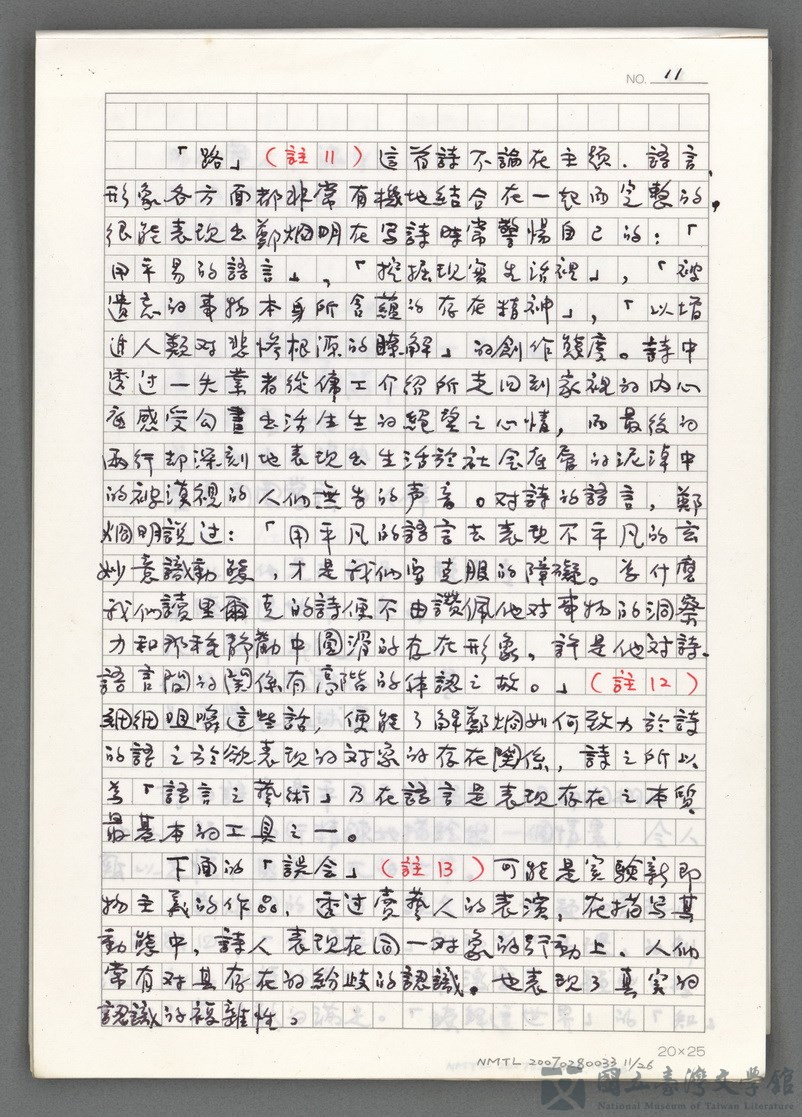 NO. 11
「路」（註11）這首詩不論在主題、語言、
形象各方面都非常有機地結合在一起而完整的，
很能表現出鄭烱明在写詩時常警惕自己的：「
用平易的語言」，「挖掘現實生活裡」，「被
遺忘的事物本身所含蘊的存在精神」，「以增
近人類对悲慘根源的瞭解」的創作態度。詩中
透过一失業者從傭工介紹所走回到家裡的內心
底感受勾畫出活生生的絕望之心情，而最後的
兩行却深刻地表現出生活於社会底層的泥淖中
的被漠視的人们無告的声音。对詩的語言，鄭
烱明說过：「用平凡的語言去表現不平凡的玄
妙意識動態，才是我们要克服的障礙。為什麼
我们讀里爾克的詩便不由讚佩他对事物的洞察
力和那種靜勸中圓滑的存在形象，許是他对詩、
語言間的関係有高階的体認之故。」（註12）
細細咀嚼這些話，便能了解鄭烱如何致力於詩
的語之於欲表現的对象的存在関係，詩之所以
為「語言之藝術」乃在語言是表現存在之本質
最基本的工具之一。
下面的「誤会」（註13）可能是實驗新即
物主義的作品，透过賣藝人的表演，在描写其
動態中，詩人表現在同一对象的行動上，人们
常有对其存在的紛歧的認識。也表現了真実的
認識的複雜性。
20×25
NMTL 20070280033 11/26
國立臺灣文學館
National Museum of Taiwan Literature